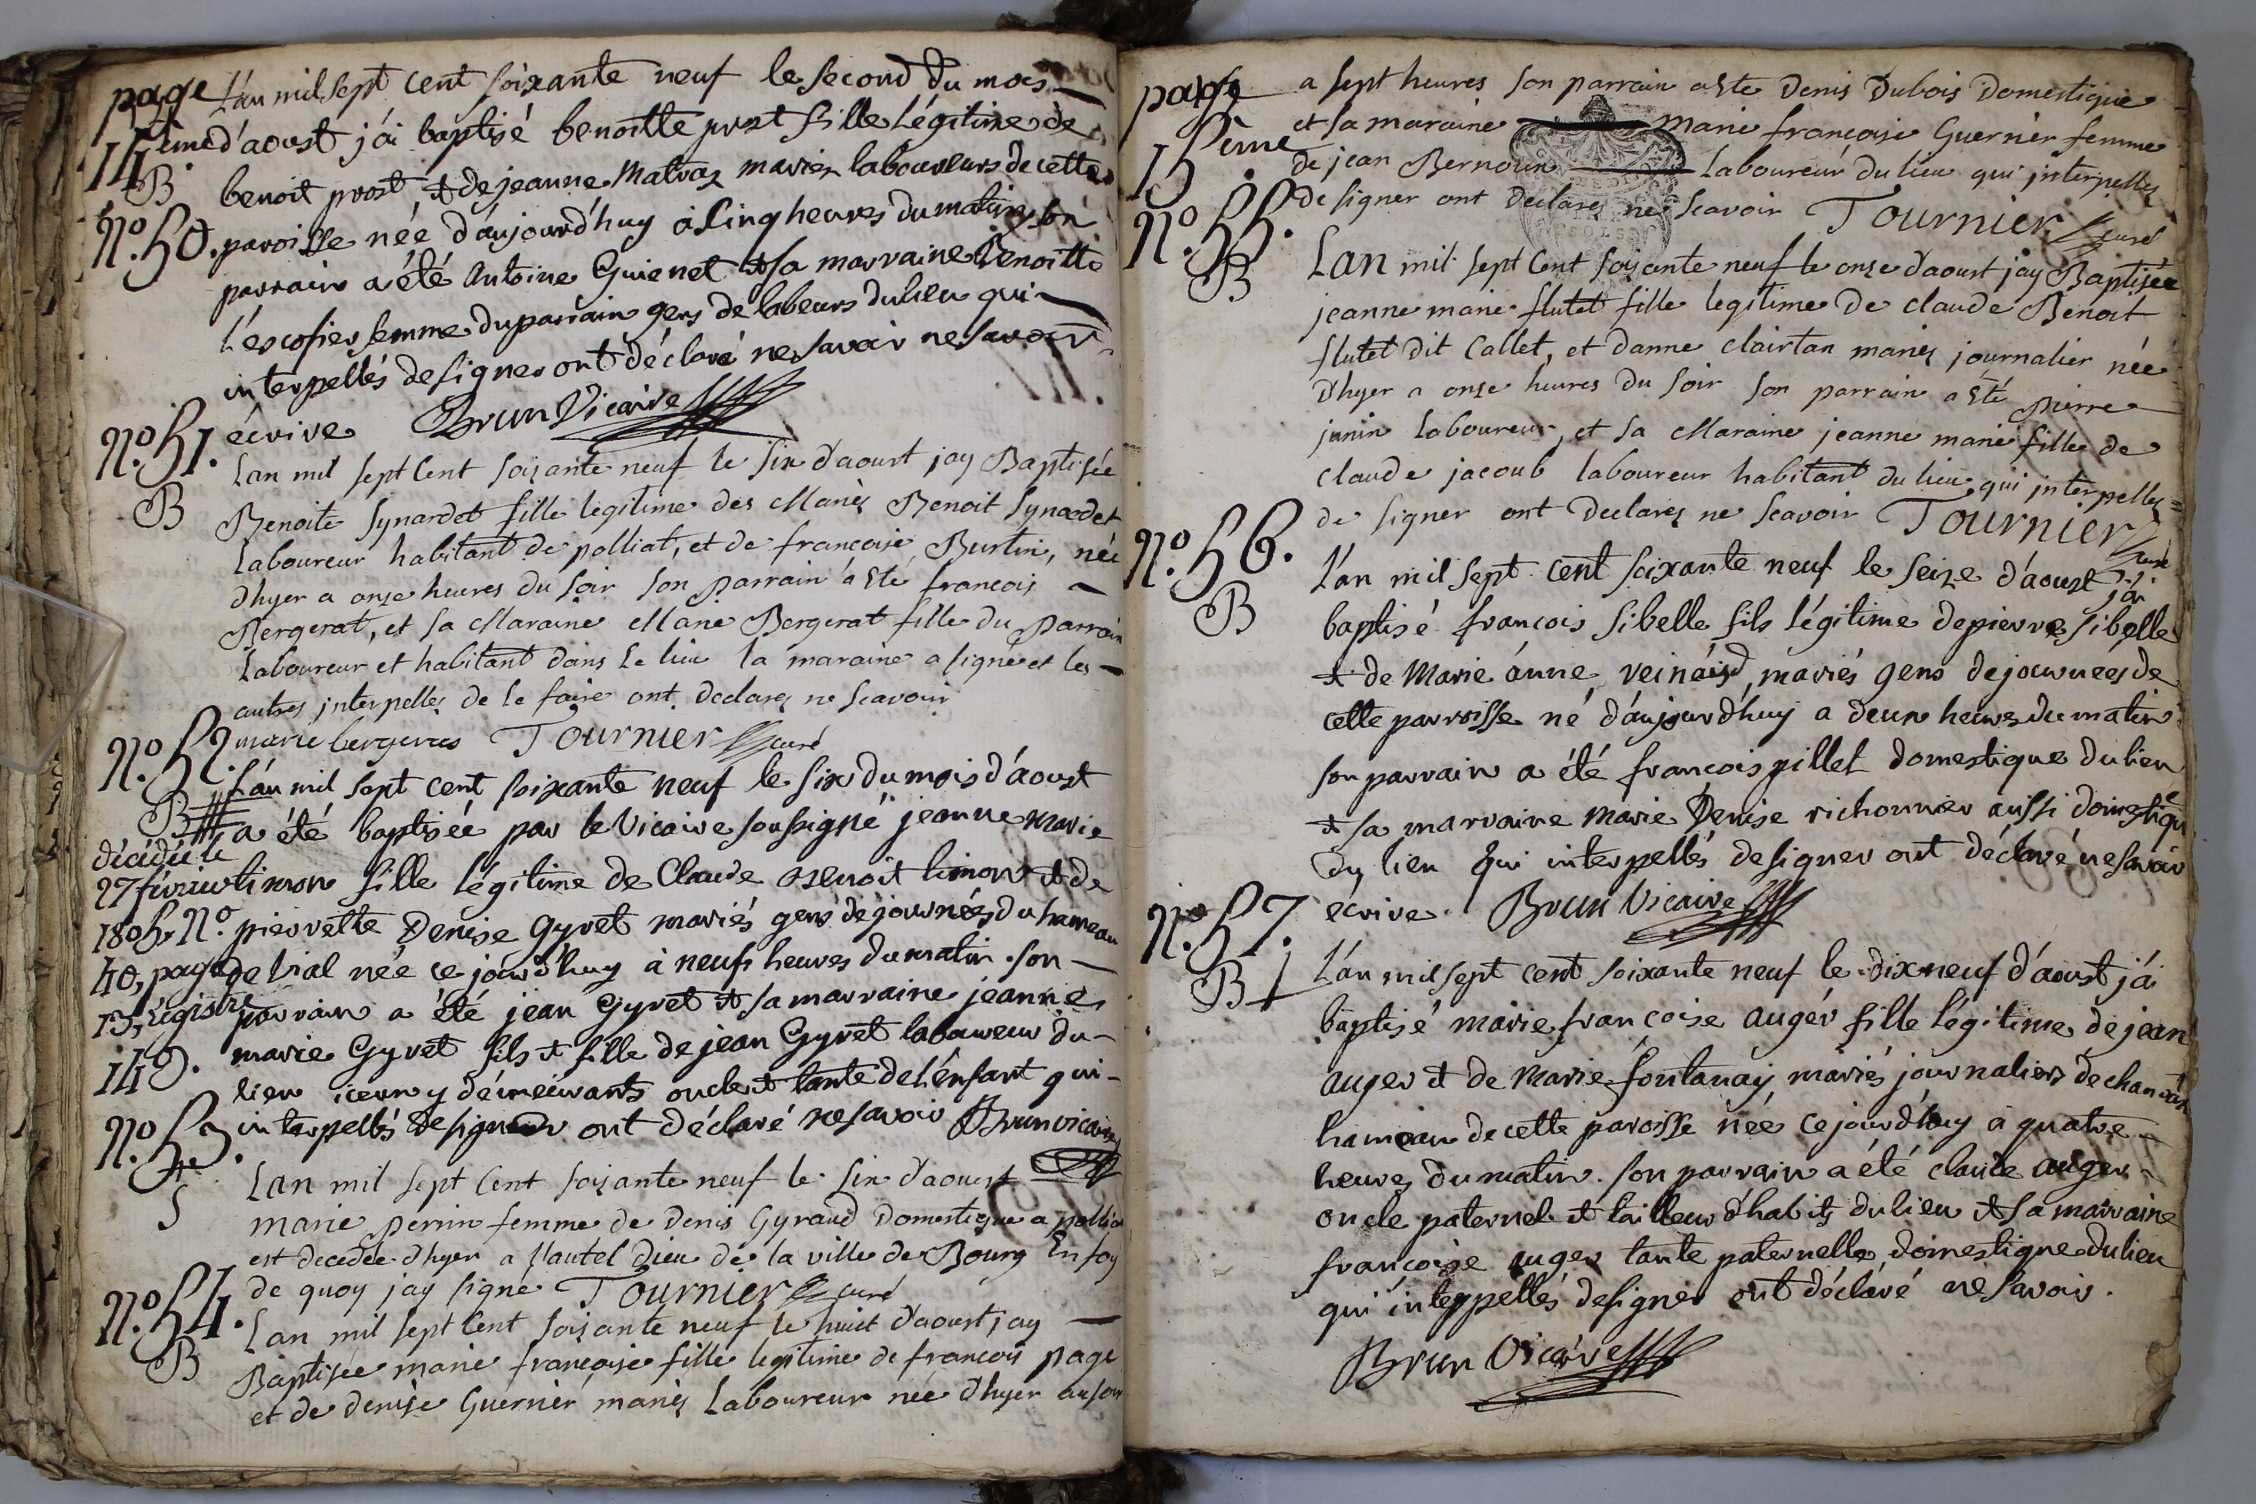 page
14ème
B
N.º 50.
L'an mil sept cent soixante neuf le second du mois
d'aoust j'ái baptisé benoitte prost fille Légitime de
benoit prost, & de jeanne Matraz mariés laboureurs de cette
paroisse née d'áujourd'huy à Cinq heures du matin son
parrain a été Antoine Guienet & sa marraine Benoitte
L'escofier femme du parrain gens de labeurs du lieu qui
interpellés de signer ont déclaré ne savoir ne savoir
écrire Brun Vicaire
N.º 51.
B
Lan mil sept Cent soixante neuf le six d'aoust jay Baptisée
Benoite Synardet fille legitime des Mariés Benoit Synardet
Laboureur habitant de polliat, et de francoise Burtin, née
d'hyer a onze heures du soir son parrain a esté francois
Bergerat, et sa Maraine Marie Bergerat fille du parrain
Laboureur et habitant dans le lieu la maraine a signé et les
autres jnterpellés de le faire ont declarez ne scavoir
marie bergeras Tournier curé
N.º 52.
B
décédée le
27 février
1805, N.º
40, page
13, régistre
149.
L'áu mil sept cent soixante neuf le six du mois d'áoust
a été baptisée par le Vicaire soussigné jeanne Marie
limon fille Légitime de Claude Benoit limon & de
pierrette Denise Gyret mariés gens de journées du hameau
de Vial née ce jourd'huy à neuf heures du matin. son
parrain a été jean Gyret & sa marraine jeanne
marie Gyret fils & fille de jean Gyret laboureur du
lieu iceux y démeurants oncle & tante de l'énfant qui
interpellés de signer ont déclaré ne savoir Brun vicaire
N.º 53.
S
Lan mil sept Cent soixante neuf le six d'aoust
marie perrin femme de Denis Gyraud Domestique a polliat
est decedée d'hyer a l'autel Dieu de la ville de Bourg En foy
de quoy jay signé Tournier curé
N.º 54.
B
Lan mil sept Cent soixante neuf le huict d'aoust jay
Baptisée marie francoise fille legitime de francois page
et de denise Guernier mariés Laboureur née d'hyer au soir
page
15ème
a sept heures son parrain a esté Denis Dubois Domestique
et sa maraine marie francoise Guernier femme
de jean Bernouin Laboureur du lieu qui jnterpellez
de signer ont declarez ne scavoir Tournier curé
N.º 55.
B
Lan mil sept Cent soixante neuf le onze d'aoust jay Baptisée
jeanne marie flutet fille legitime de claude Benoit
flutet dit Callet, et danne clairtan mariés journalier née
d'hyer a onze heures du soir son parrain a esté pierre
janin laboureur, et sa Maraine jeanne marie fille de
claude jacoub laboureur habitant du lieu qui jnterpellez
de signer ont declarez ne scavoir Tournier curé
N.º 56.
B
L'an mil sept cent soixante neuf le seize d'áoust j'ái
baptisé françois sibelle fils légitime de pierre sibelle
& de Marie ánne veináisd mariés gens de journees de
cette parroisse né d'áujourd'huy a deux heures du matin
son parrain a été françois pillet domestique du lieu
& sa marraine Marie Denise richonnier aussi domestique
du lieu qui interpellés de signer ont déclaré ne savoir
écrire. Brun Vicaire
N.º 57.
B
L'án mil sept cent soixante neuf le dix neuf d'áoust j'ái
baptisé marie françoise augér fille légitime de jean
auger & de Marie fontanay mariés journaliers de chanoz
hameau de cette paroisse née ce jourd'huy à quatre
heures du matin. son parrain a été claude auger
oncle paternel & tailleur d'habits du lieu & sa marraine
françoise auger tante paternelle domestique du lieu
qui interppellés de signer ont déclaré ne savoir.
Brun Vicaire